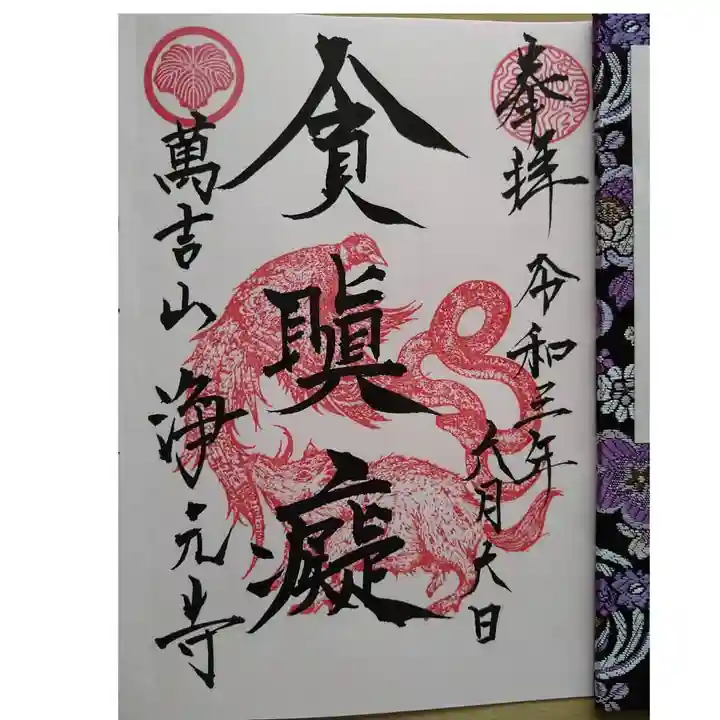 奉拝
令和三年
六月六日
貪瞋癡
萬吉山浄元寺